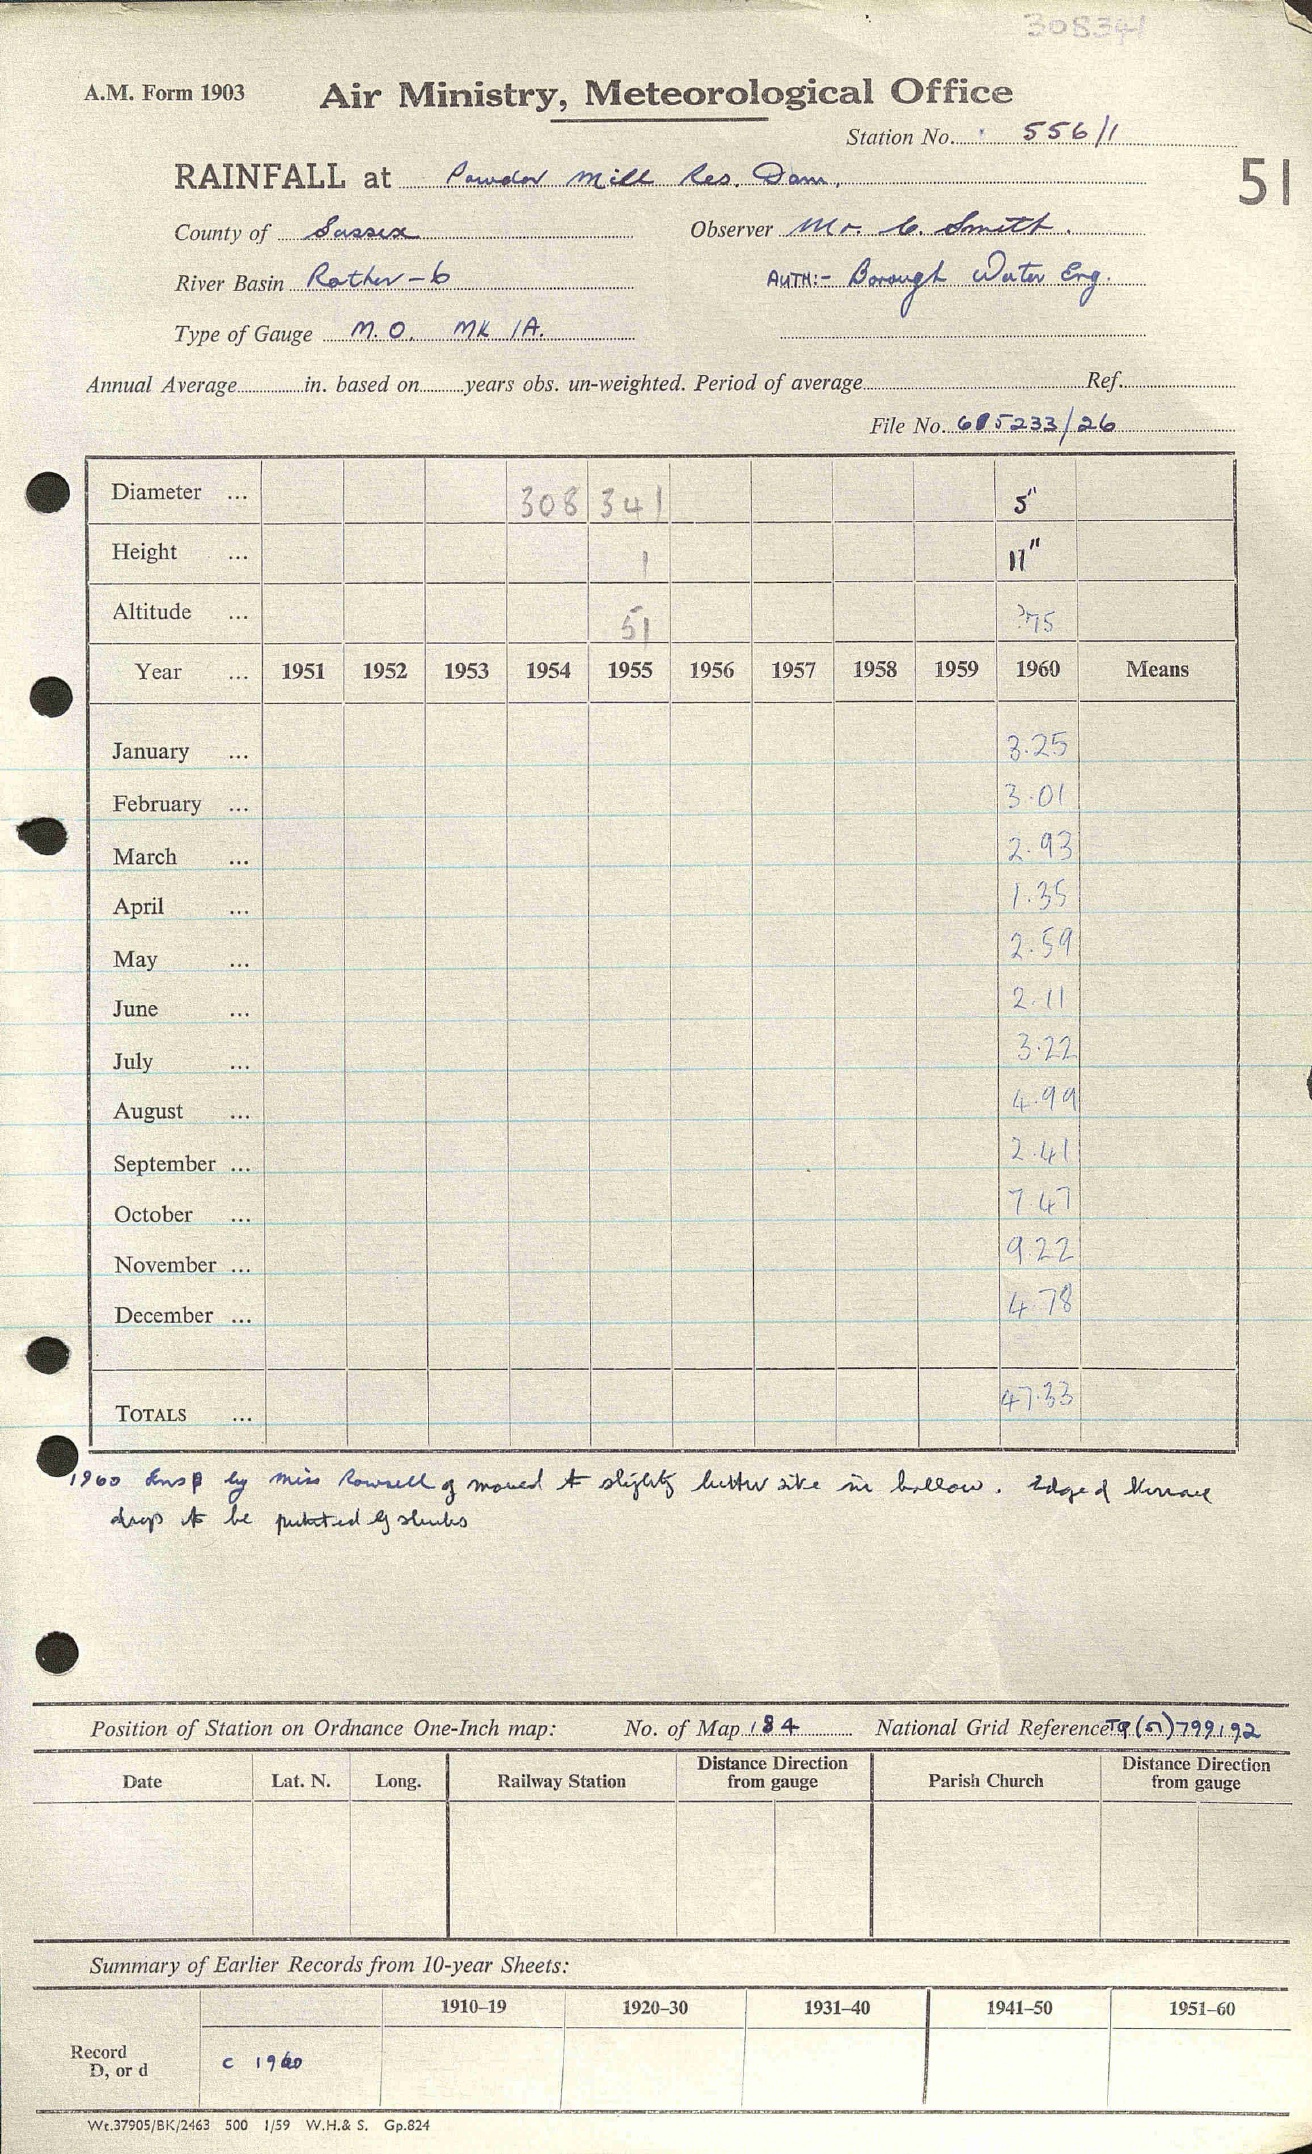 308341
A.M. Form 1903 Air Ministry, Meteorological Office
Station No. 556/1
51
RAINFALL at Powder Mill Res. Dam.
County of Sussex Observer Mr. C. Smith.
River Basin Rother-6 AUTH:- Borough Water Eng.
Type of Gauge M.O. MK IA.
Annual Average in. based on years obs. un-weighted. Period of average Ref.
File No. 605233/26
Diameter ... 308 341 5"
Height ... 1 11"
Altitude ... 51 ?75
Year ... 1951 1952 1953 1954 1955 1956 1957 1958 1959 1960 Means
January ... 3.25
February ... 3.01
March ... 2.93
April ... 1.35
May ... 2.59
June ... 2.11
July ... 3.22
August ... 4.99
September ... 2.41
October ... 7.47
November ... 9.22
December ... 4.78
TOTALS ... 47.33
1960 Insp by Miss Rowsell moved to slightly better site in hollow. Edge of terrace
drop to be by shrubs
Position of Station on Ordnance One-Inch map: No. of Map 184 National Grid Reference TQ(51)799192
Date Lat. N. Long. Railway Station Distance Direction from gauge Parish Church Distance Direction from gauge
Summary of Earlier Records from 10-year Sheets:
1910–19 1920–30 1931–40 1941–50 1951–60
Record
D, or d c 1960
Wt.37905/BK/2463 500 1/59 W.H.& S. Gp.824